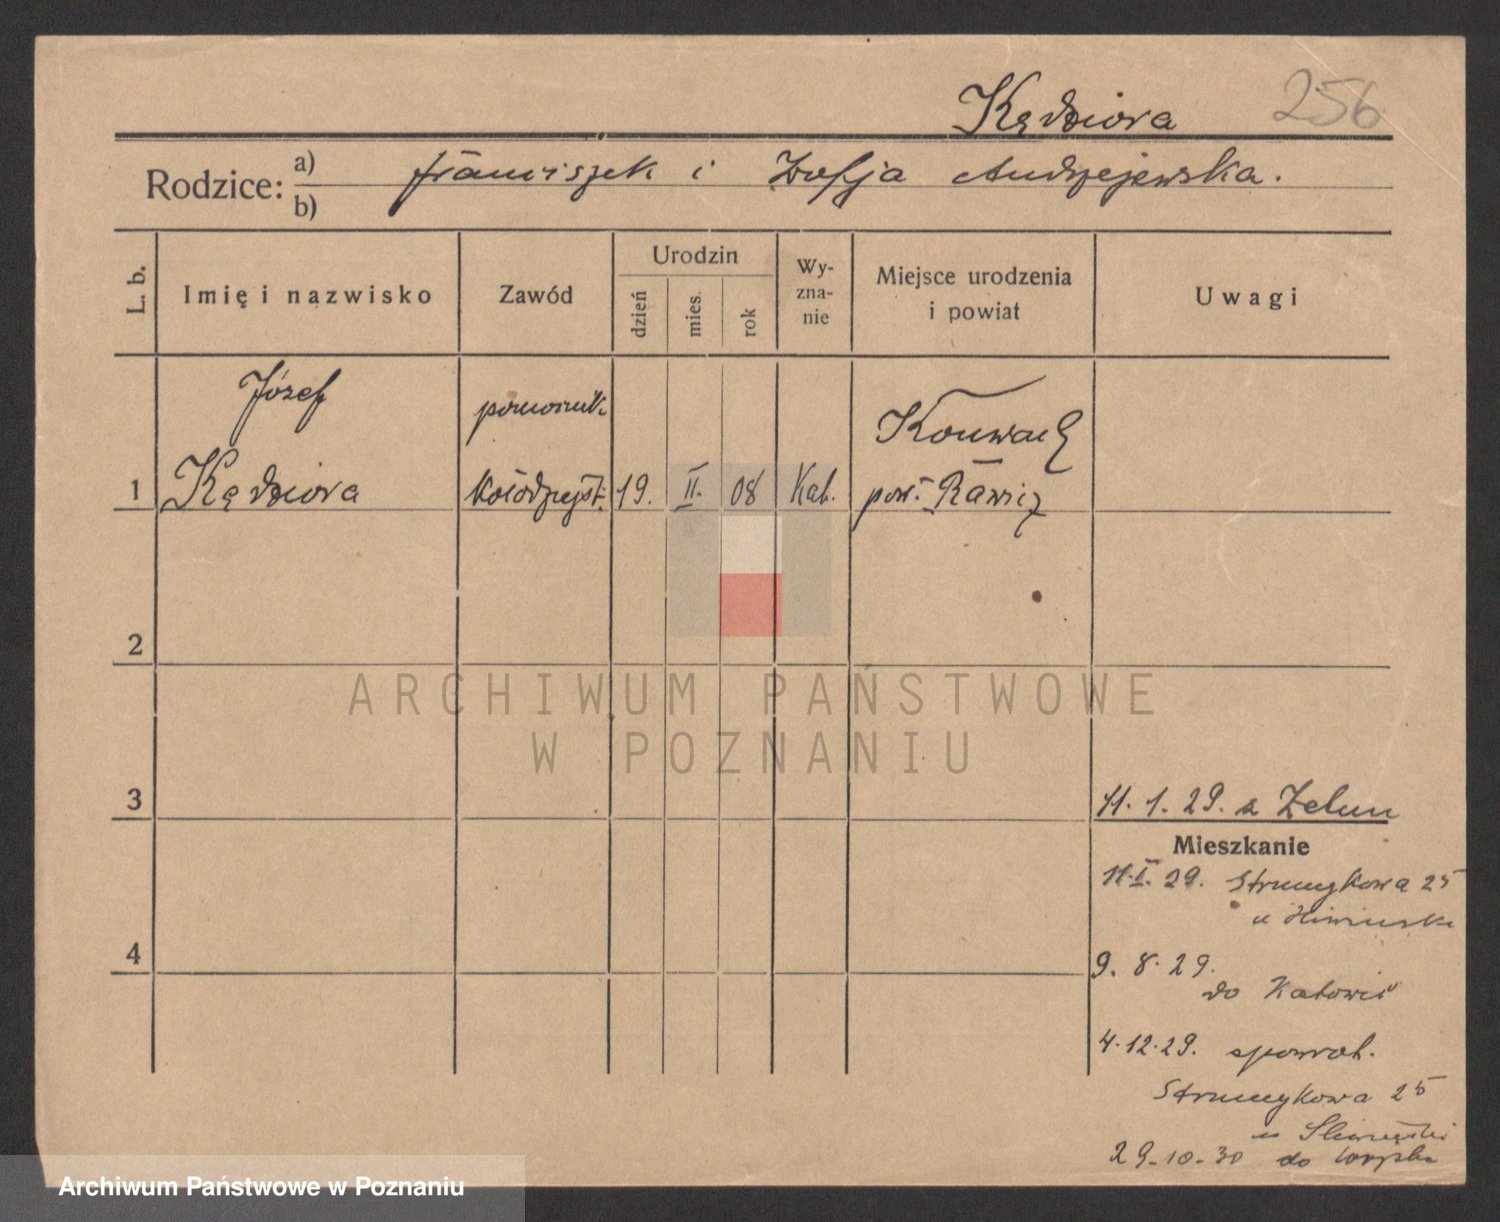 Kędziora 256
Rodzice: a) Franciszek i Zofja Andrzejewska.
b)
L. b.
Imię i nazwisko
Zawód
Urodzin
dzień
mies.
rok
Wy-
zna-
nie
Miejsce urodzenia
i powiat
Uwagi
1
Józef
Kędziora
pomocnik
kołodziejsk.
19. II. 08 Kat.
pow. Rawicz
2
ARCHIWUM PAŃSTWOWE
W POZNANIU
3
11. 1. 29. z
Mieszkanie
11. I. 29. Strumykowa 25
u
4
9. 8. 29.
do Katowic
4.12.29. spowrot.
Strumykowa 25
u
29-10-30 do wojska
Archiwum Państwowe w Poznaniu